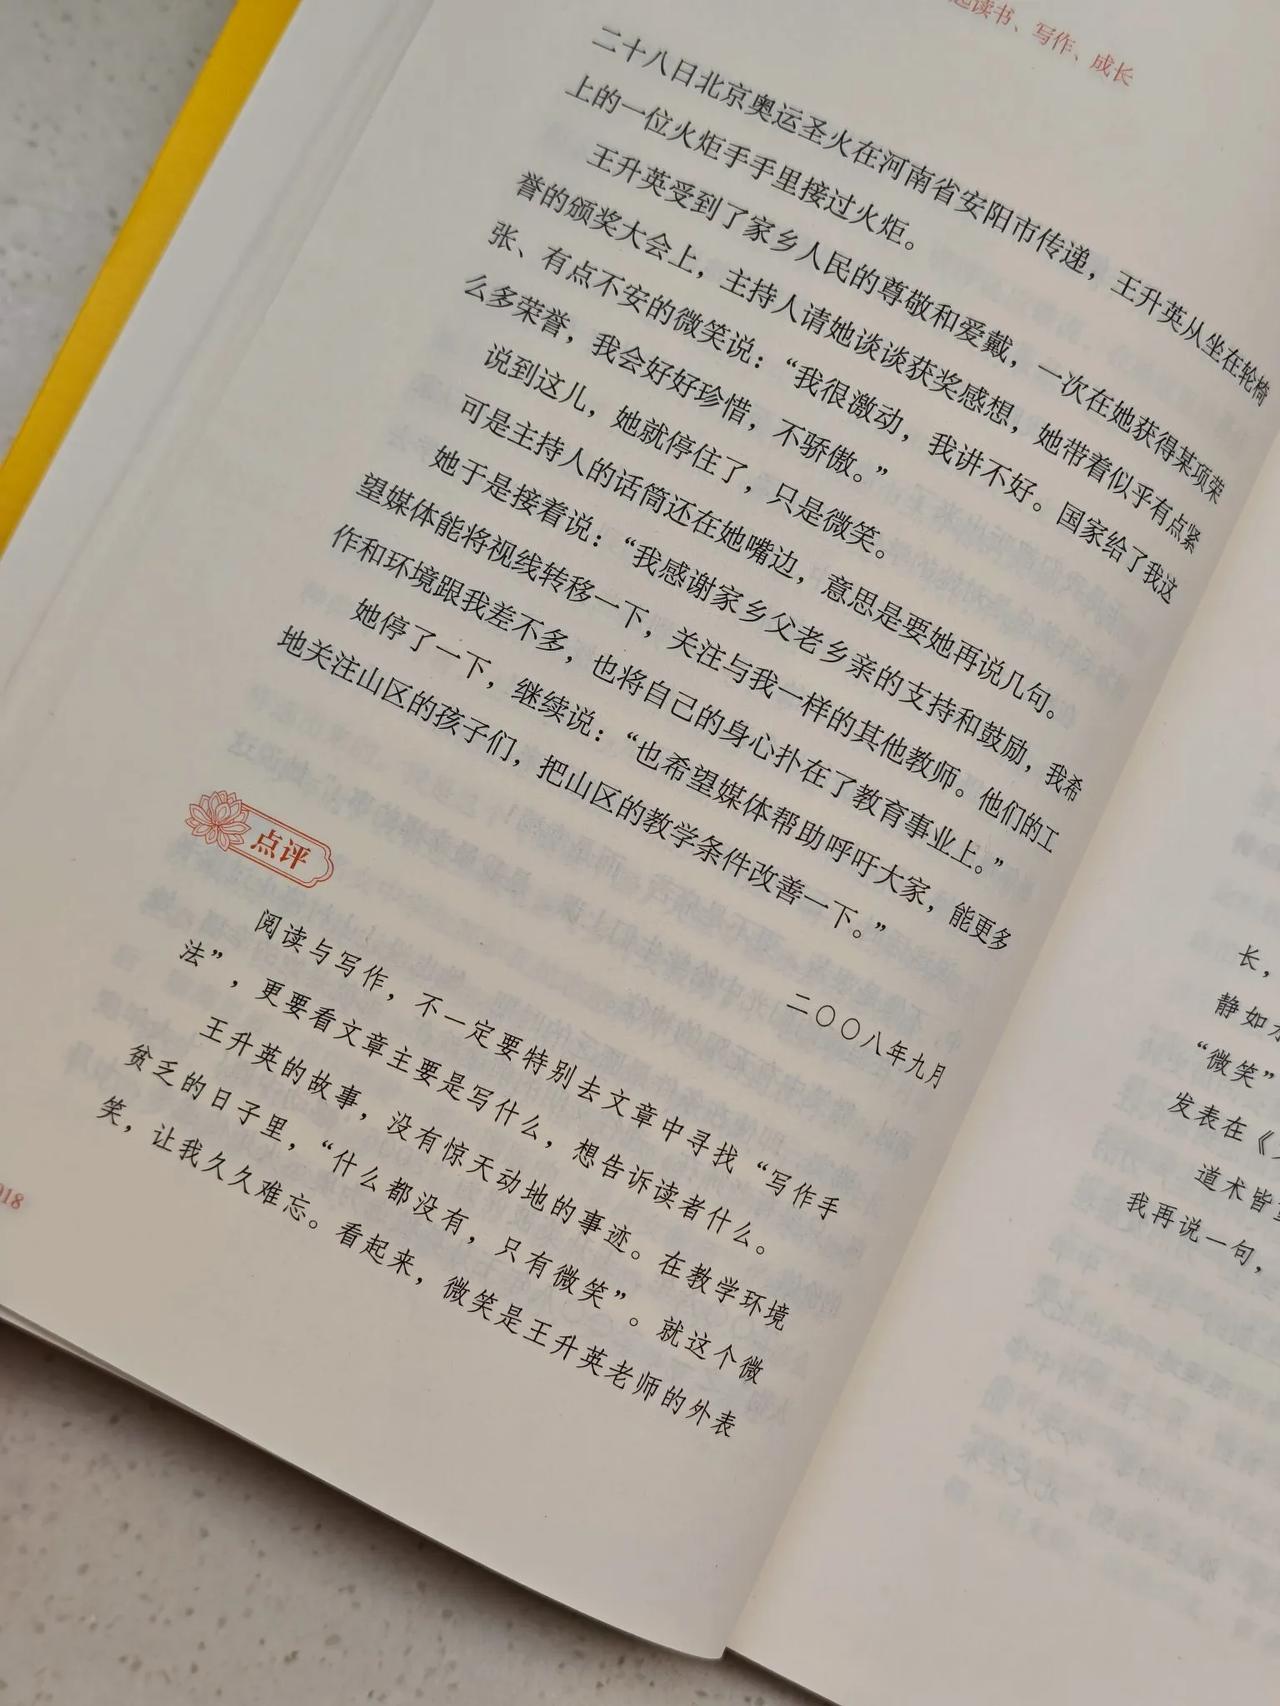 读书、写作、成长
二十八日北京奥运圣火在河南省安阳市传递，王升英从坐在轮椅
上的一位火炬手手里接过火炬。
王升英受到了家乡人民的尊敬和爱戴，一次在她获得某项荣
誉的颁奖大会上，主持人请她谈谈获奖感想，她带着似乎有点紧
张、有点不安的微笑说：“我很激动，我讲不好。国家给了我这
么多荣誉，我会好好珍惜，不骄傲。”
说到这儿，她就停住了，只是微笑。
可是主持人的话筒还在她嘴边，意思是要她再说几句。
她于是接着说：“我感谢家乡父老乡亲的支持和鼓励，我希
望媒体能将视线转移一下，关注与我一样的其他教师。他们的工
作和环境跟我差不多，也将自己的身心扑在了教育事业上。”
她停了一下，继续说：“也希望媒体帮助呼吁大家，能更多
地关注山区的孩子们，把山区的教学条件改善一下。”
二〇〇八年九月
点评
阅读与写作，不一定要特别去文章中寻找“写作手
法”，更要看文章主要是写什么，想告诉读者什么。
王升英的故事，没有惊天动地的事迹。在教学环境
贫乏的日子里，“什么都没有，只有微笑”。就这个微
笑，让我久久难忘。看起来，微笑是王升英老师的外表
018
长，
静如
“微笑”
发表在《
道术皆
我再说一句，